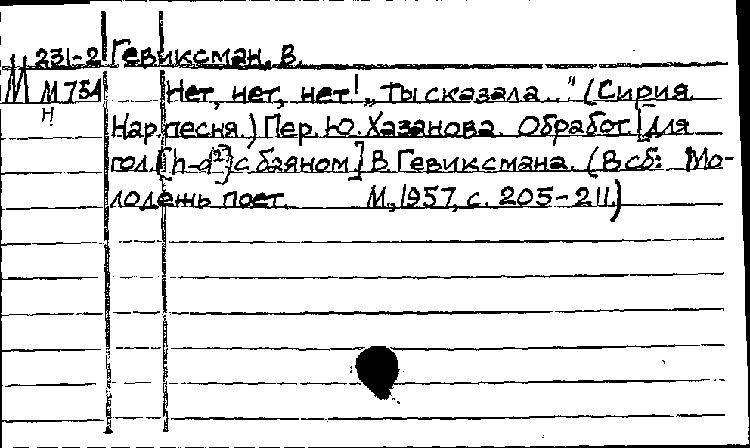 М 231-2 Гевиксман, В.
М 754 Нет, нет, нет! „Ты сказала..." (Сирия.
Н Нар. песня.) Пер. Ю. Хазанова. Обработ. [для
гол. [h-d²] с баяном] В. Гевиксмана. (В сб: Мо-
лодежь поет. М., 1957, с. 205-211.)